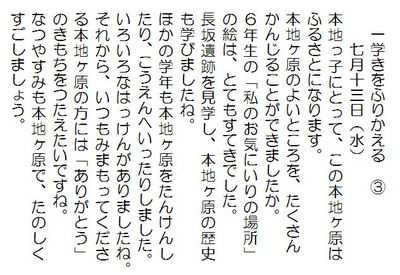 一学きをふりかえる　③
七月十三日（水）
本地っ子にとって、この本地ヶ原は
ふるさとになります。
本地ヶ原のよいところを、たくさん
かんじることができましたか。
６年生の「私のお気にいりの場所」
の絵は、とてもすてきでした。
長坂遺跡を見学し、本地ヶ原の歴史
も学びましたね。
ほかの学年も本地ヶ原をたんけんし
たり、こうえんへいったりしました。
いろいろなはっけんがありましたね。
それから、いつもみまもってくださ
る本地ヶ原の方には「ありがとう」
のきもちをつたえたいですね。
なつやすみも本地ヶ原で、たのしく
すごしましょう。